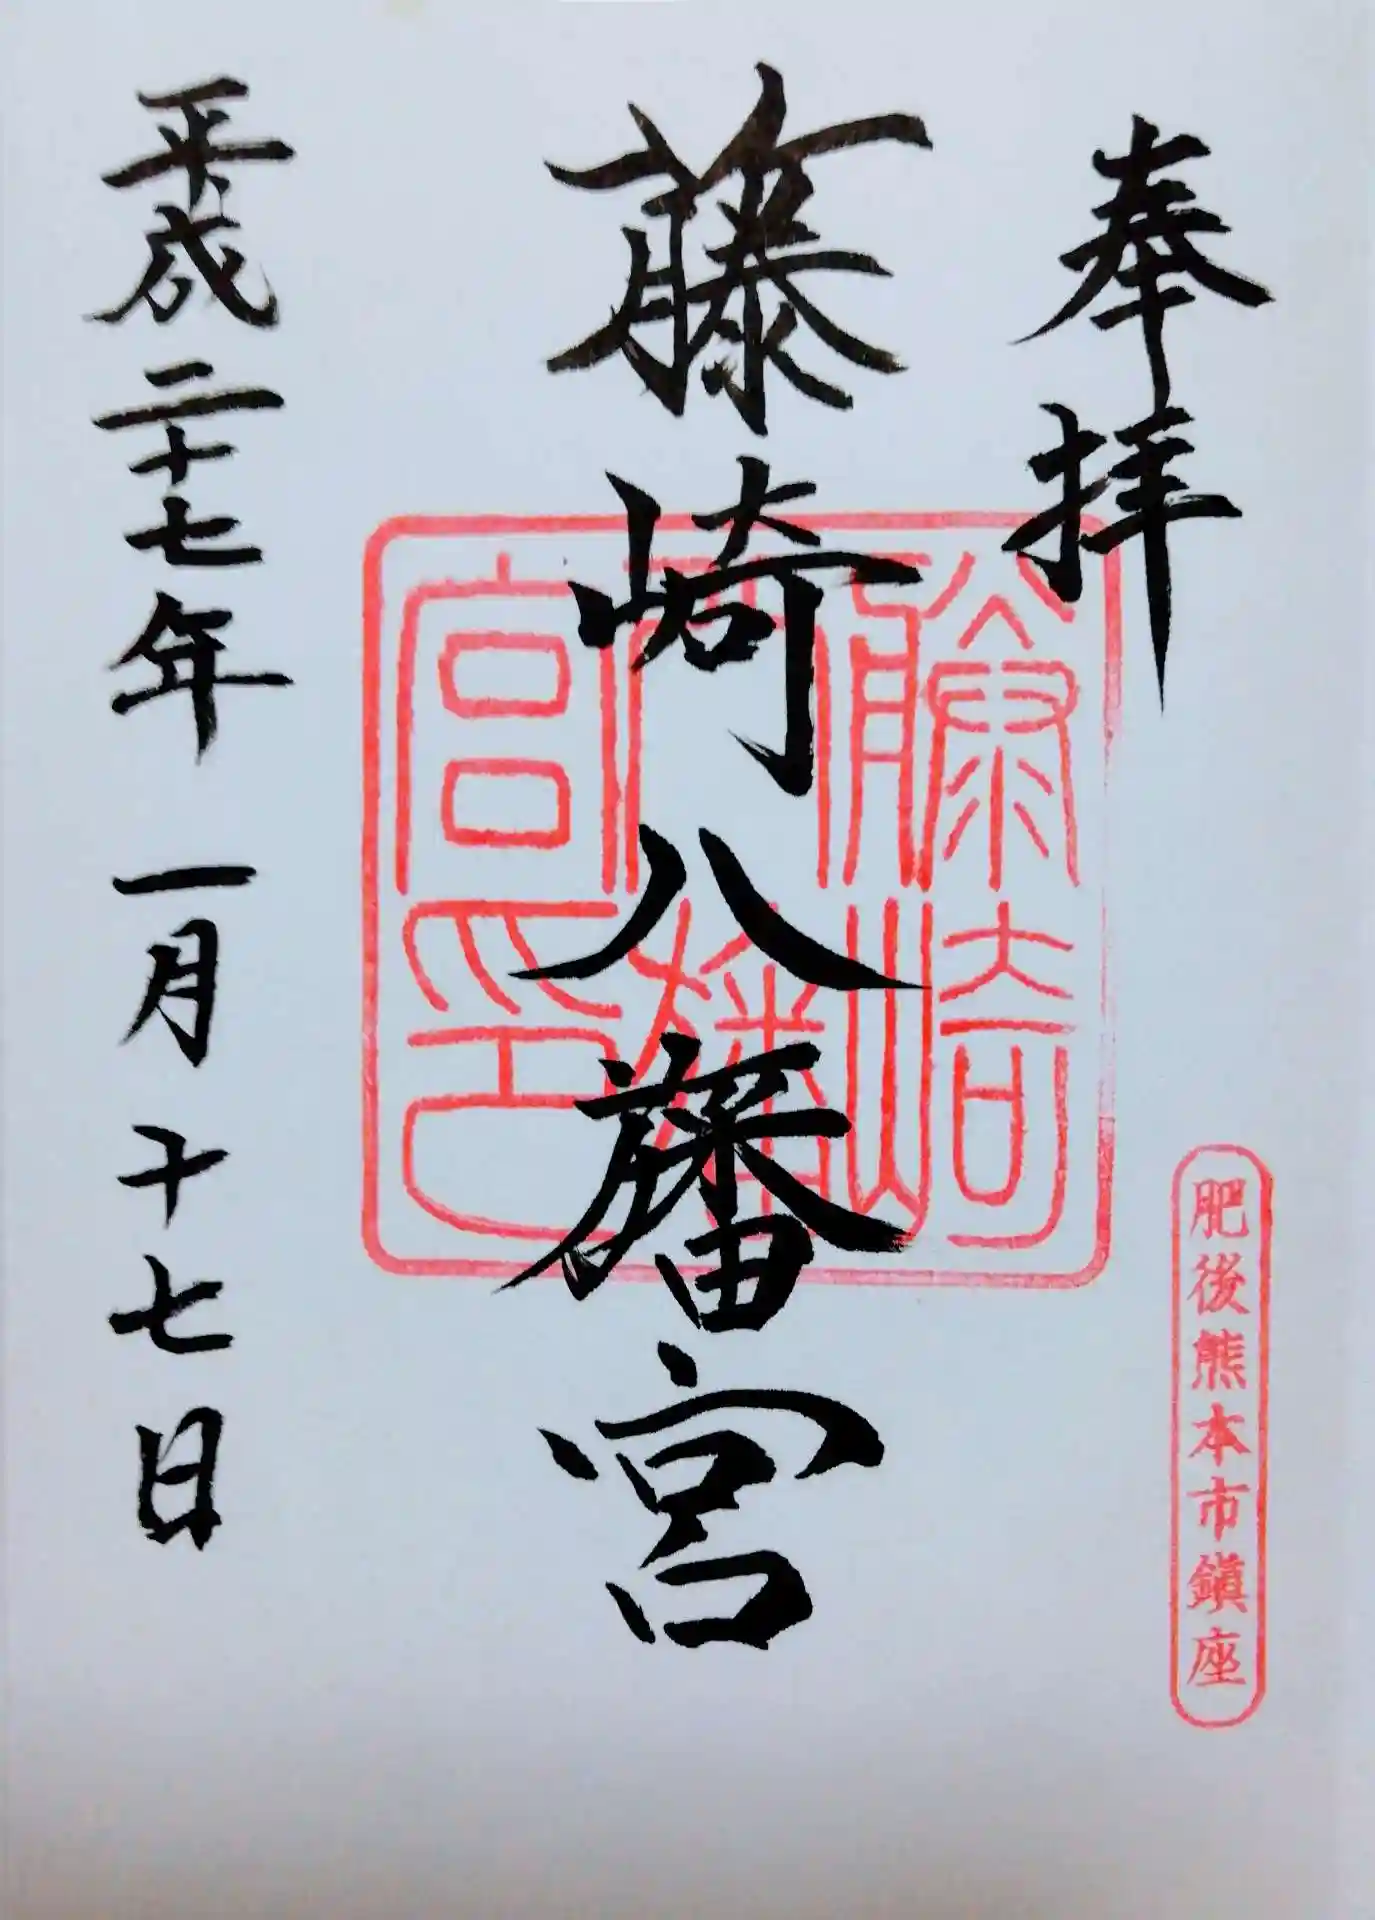 奉拝
肥後熊本市鎭座
藤崎八旛宮
藤崎
八旛
宮印
平成二十七年一月十七日